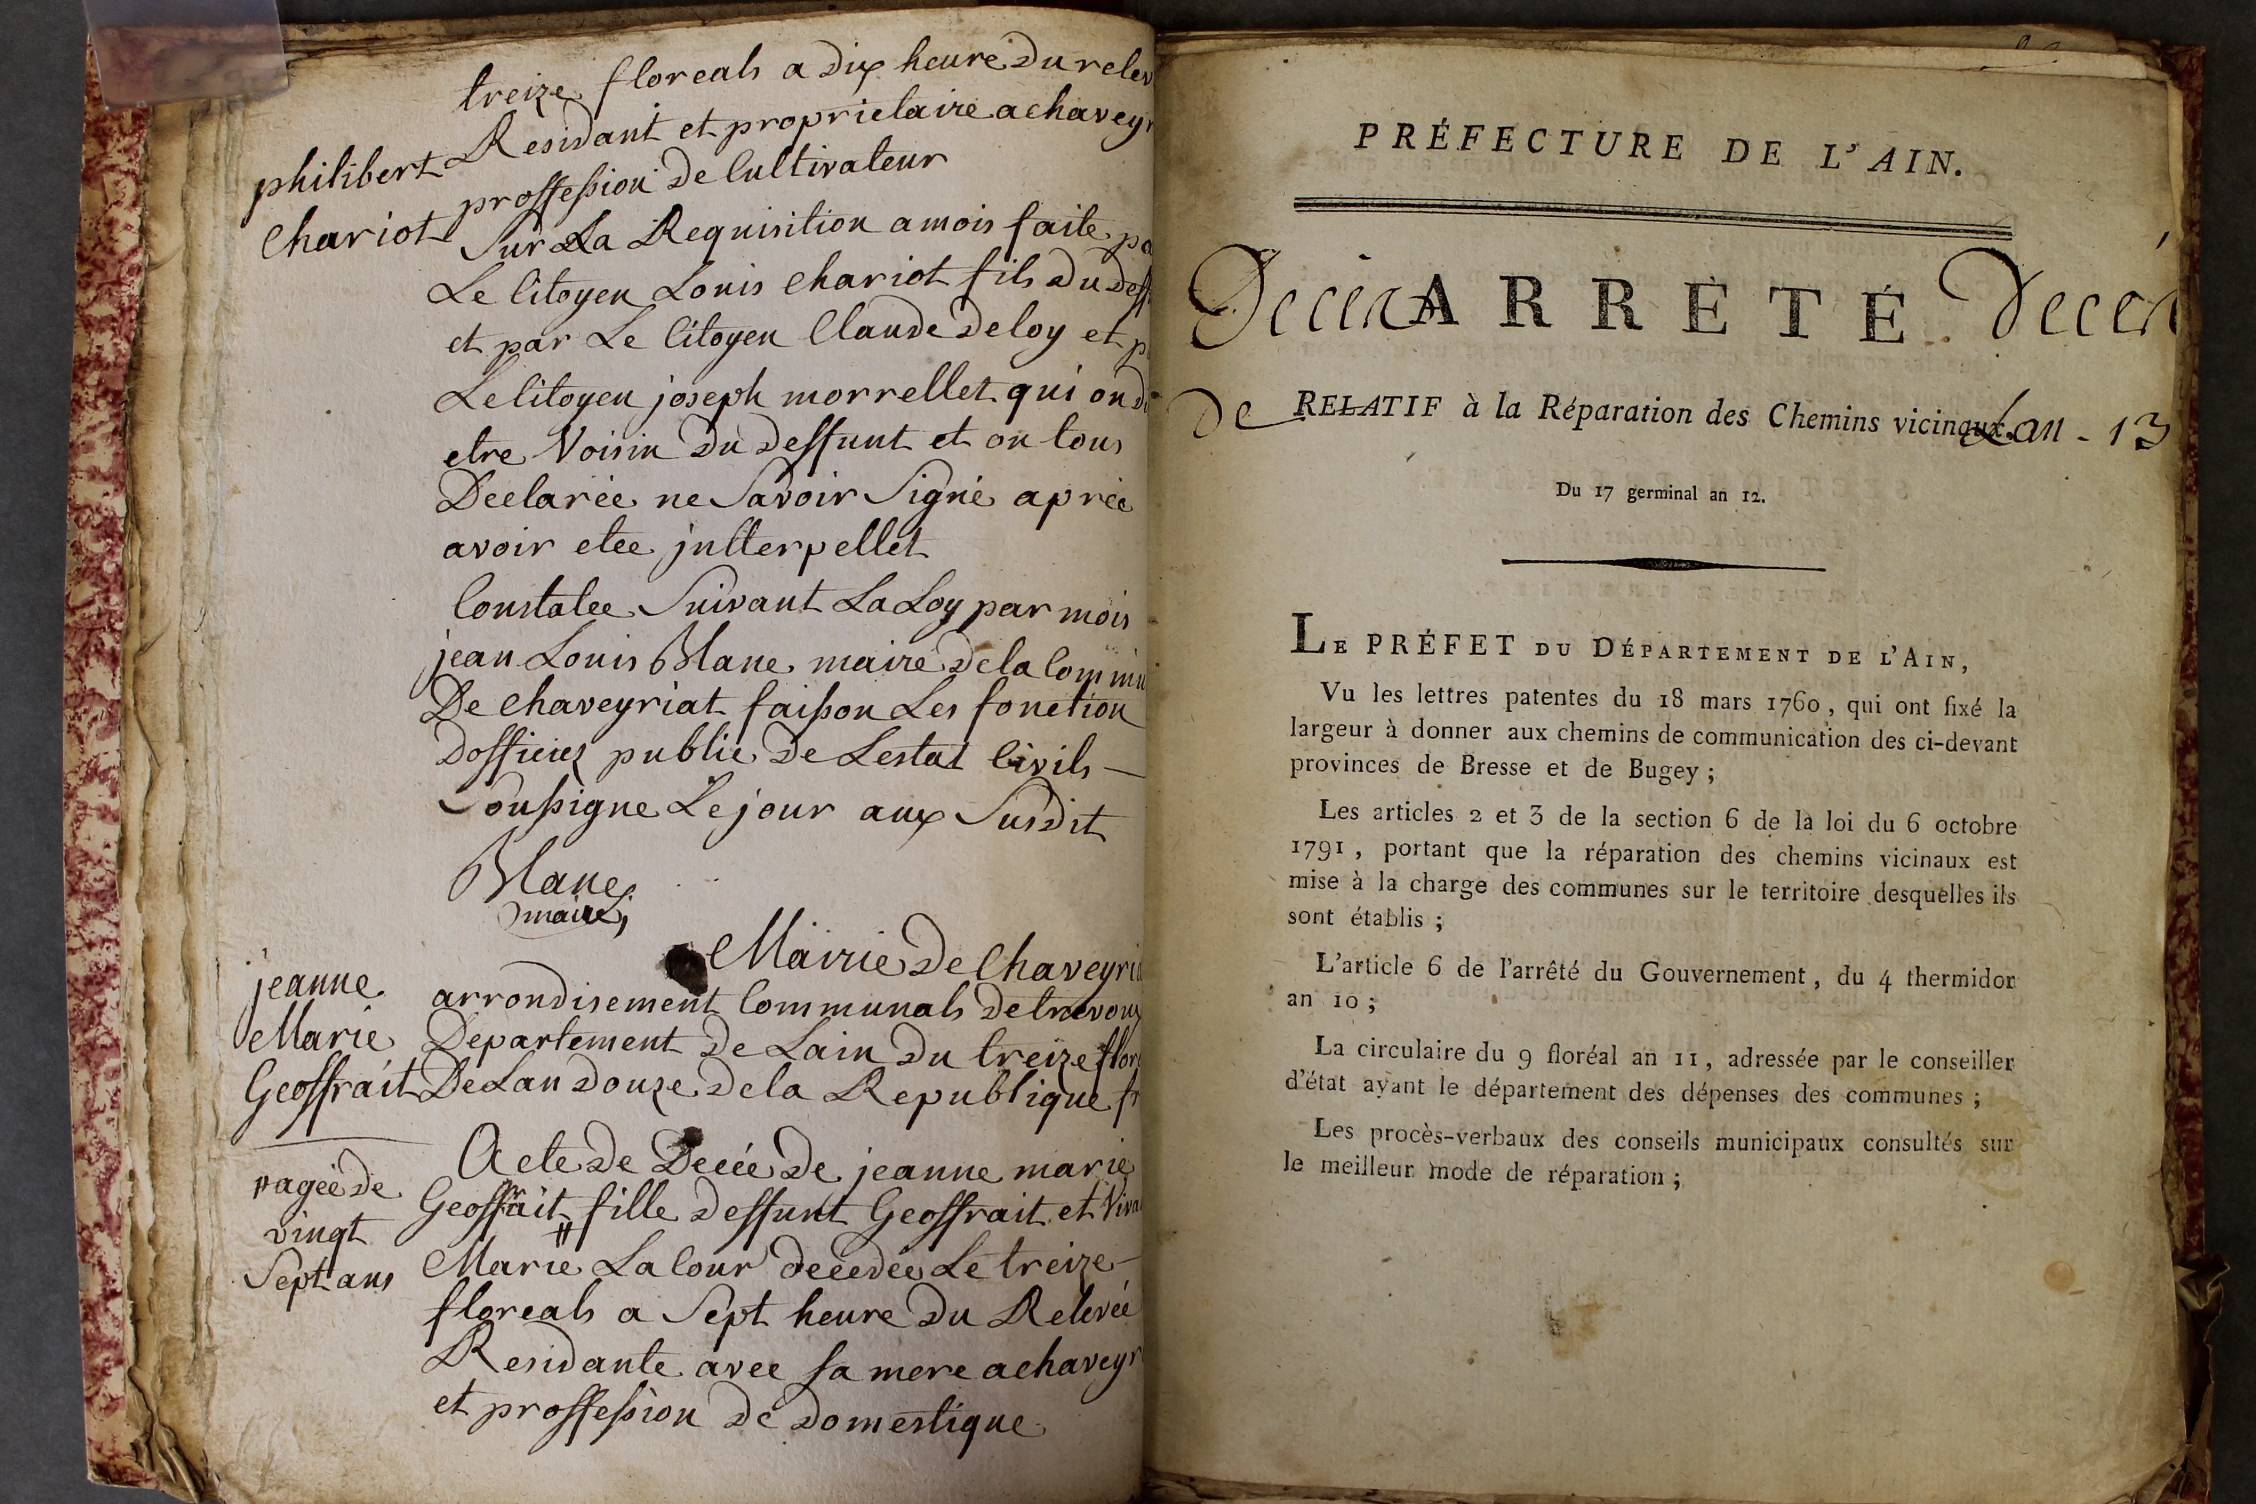 treize floreals a dix heure Du relev
Residant et proprietaire a chavey
proffession De Cultivateur
philibert
Chariot
Sur La Requisition a mois faite pa
Le Citoyen Louis Chariot fils Du deff
et par Le Citoyen Claude Deloy et p
Le Citoyen joseph morrellet qui on di
etre Voisin Du deffunt et on tous
Declarée ne Savoir Signé aprèe
avoir etee jntterpellet
Constatee Suivant La Loy par mois
jean Louis Blanc maire dela Commu
De chaveyriat faisson Les fonction
Dofficiez public De Lestat Civils —
Soussigne Le jour aux Susdit
Blanc
maire
Mairie De Chaveyria
arrondisement Communals De trevoux
Departement De Lain Du treize flore
De Lan Douze dela Republique fr
jeanne
Marie
Geoffrait
Acte De Decée De jeanne marie
Geoffrait " fille deffunt Geoffrait et Viva
Marie Lacour decedée Le treize —
floreals a Sept heure Du Relevée
Residante avec sa mere a chaveyr
et proffession de domestique
" ageé de
vingt
Sept ans
PRÉFECTURE DE L'AIN.
Decés ARRÊTÉ Decés
de RELATIF à la Réparation des Chemins vicinaux. Lan - 13
Du 17 germinal an 12.
LE PRÉFET DU DÉPARTEMENT DE L'AIN,
Vu les lettres patentes du 18 mars 1760, qui ont fixé la
largeur à donner aux chemins de communication des ci-devant
provinces de Bresse et de Bugey ;
Les articles 2 et 3 de la section 6 de la loi du 6 octobre
1791, portant que la réparation des chemins vicinaux est
mise à la charge des communes sur le territoire desquelles ils
sont établis ;
L'article 6 de l'arrêté du Gouvernement, du 4 thermidor
an 10 ;
La circulaire du 9 floréal an 11, adressée par le conseiller
d'état ayant le département des dépenses des communes ;
Les procès-verbaux des conseils municipaux consultés sur
le meilleur mode de réparation ;